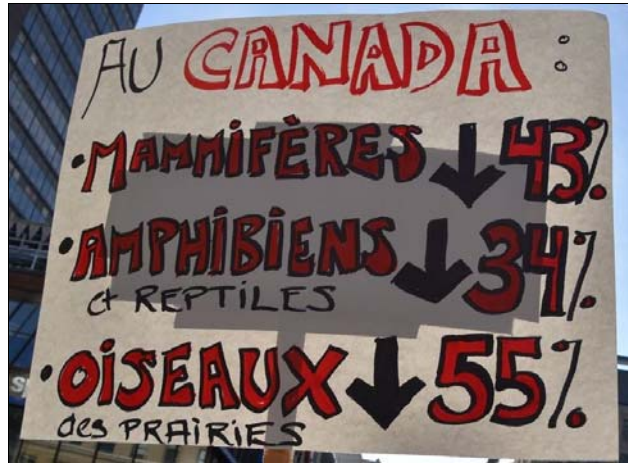 AU CANADA :
• MAMMIFÈRES ↓ 43%
• AMPHIBIENS ↓ 34%
et REPTILES
• OISEAUX ↓ 55%
des PRAIRIES